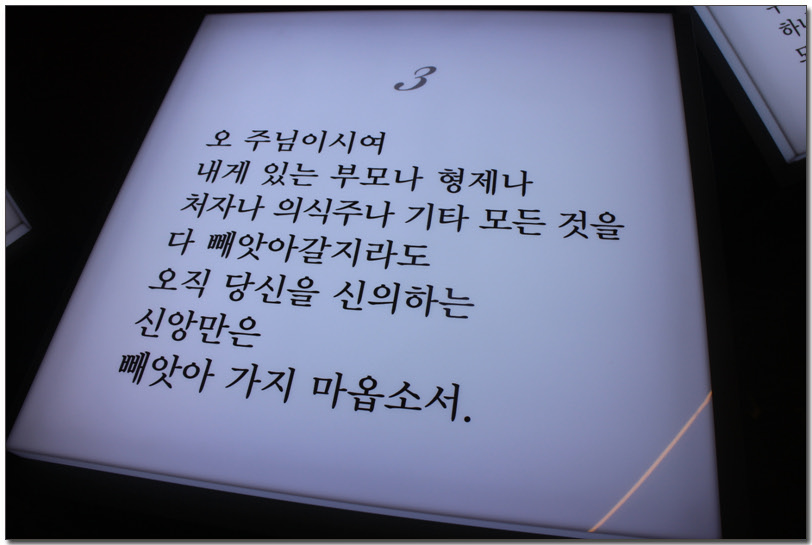 3
오 주님이시여
내게 있는 부모나 형제나
처자나 의식주나 기타 모든 것을
다 빼앗아갈지라도
오직 당신을 신의하는
신앙만은
빼앗아 가지 마옵소서.